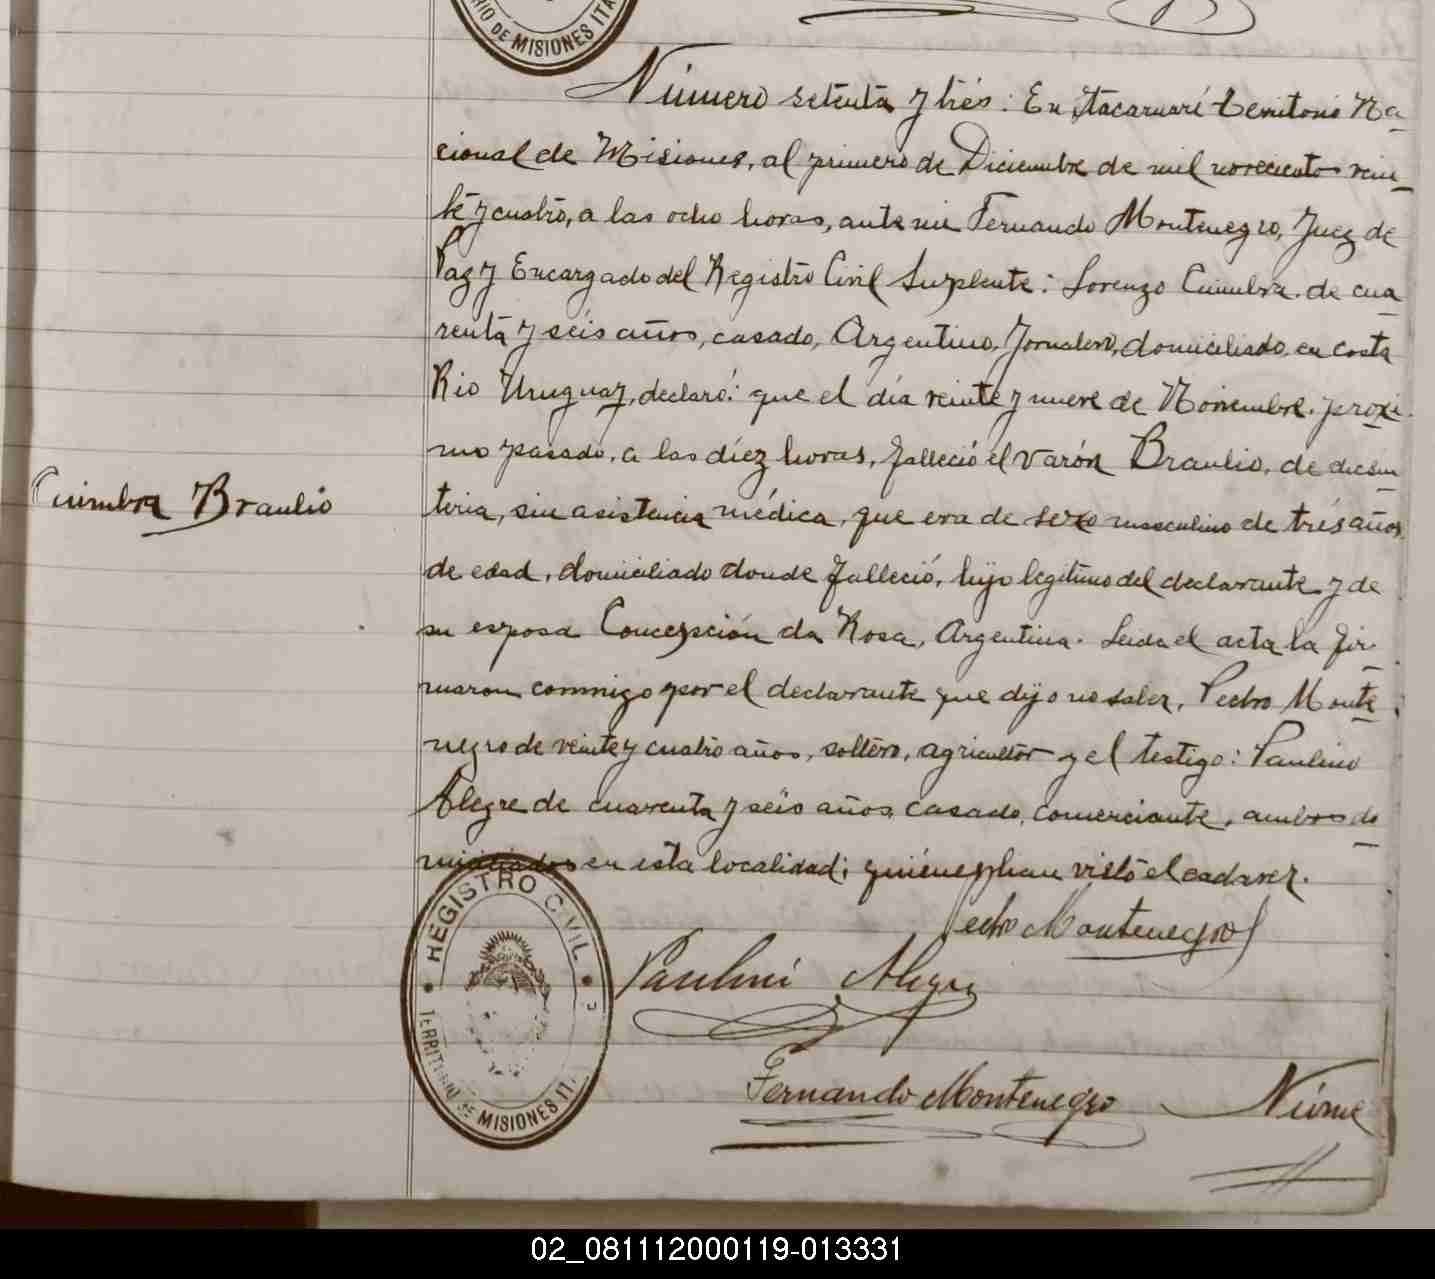 RIO DE MISIONES ITA
Número setenta y trés: En Itacaruaré territorio Na-
cional de Misiones, al primero de Diciembre de mil novecientos vein-
te y cuatro, a las ocho horas, ante mi Fernando Montenegro, Juez de
Paz y Encargado del Registro Civil Suplente: Lorenzo Cuimbra. de cua
renta y seis años, casado, Argentino, Jornalero, domiciliado, en costa
Rio Uruguay, declaró: que el día veinte y nueve de Noviembre. proxi-
mo pasado, a las diez horas, falleció el varón Braulio, de disen-
Cuimbra Braulio
teria, sin asistencia médica, que era de sexo masculino de trés años
de edad, domiciliado donde falleció, hijo legítimo del declarante y de
su esposa Concepción da Rosa, Argentina. Leida el acta la fir-
maron conmigo por el declarante que dijo no saber, Pedro Monte-
negro de veinte y cuatro años, soltero, agricultor y el testigo: Paulino
Alegre de cuarenta y seis años, casado, comerciante, ambos do-
miciliados en esta localidad; quiénes han visto el cadaver.
Pedro Montenegro
Paulino Alegre
REGISTRO CIVIL
TERRITORIO DE MISIONES IT
Fernando Montenegro
Núme
02_081112000119-013331